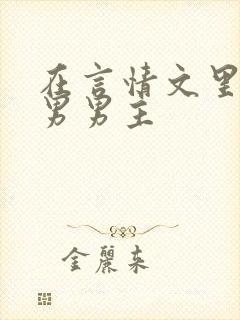 在言情文里
男男主
金丽来